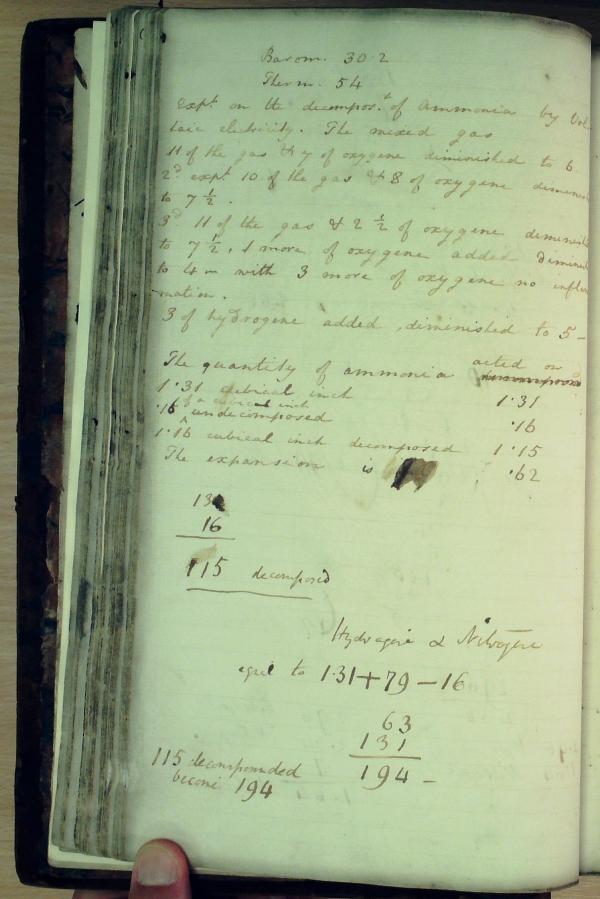 Barom. 30.2
Therm. 54
Expt on the decomposn. of ammonia by Vol
taic electricity. The mixed gas
11 of the gas & 7 of oxygene diminished to 6
2d expt. 10 of the gas & 8 of oxygene dimini
to 7 1/2.
3d 11 of the gas & 2 1/2 of oxygene diminish
to 7 1/2, 1 more of oxygene added diminis
to 4 – with 3 more of oxygene no inflam
mation.
3 of hydrogene added, diminished to 5 –
The quantity of ammonia acted on
1.31 cubical inch 1.31
.16 of a cubical inch undecomposed .16
1.16 cubical inch decomposed 1.15
The expansion is .62
13
16
115 decomposed
Hydrogene & Nitrogene
equal to 1.31+79–16
63
131
194 –
115 decompounded
become 194